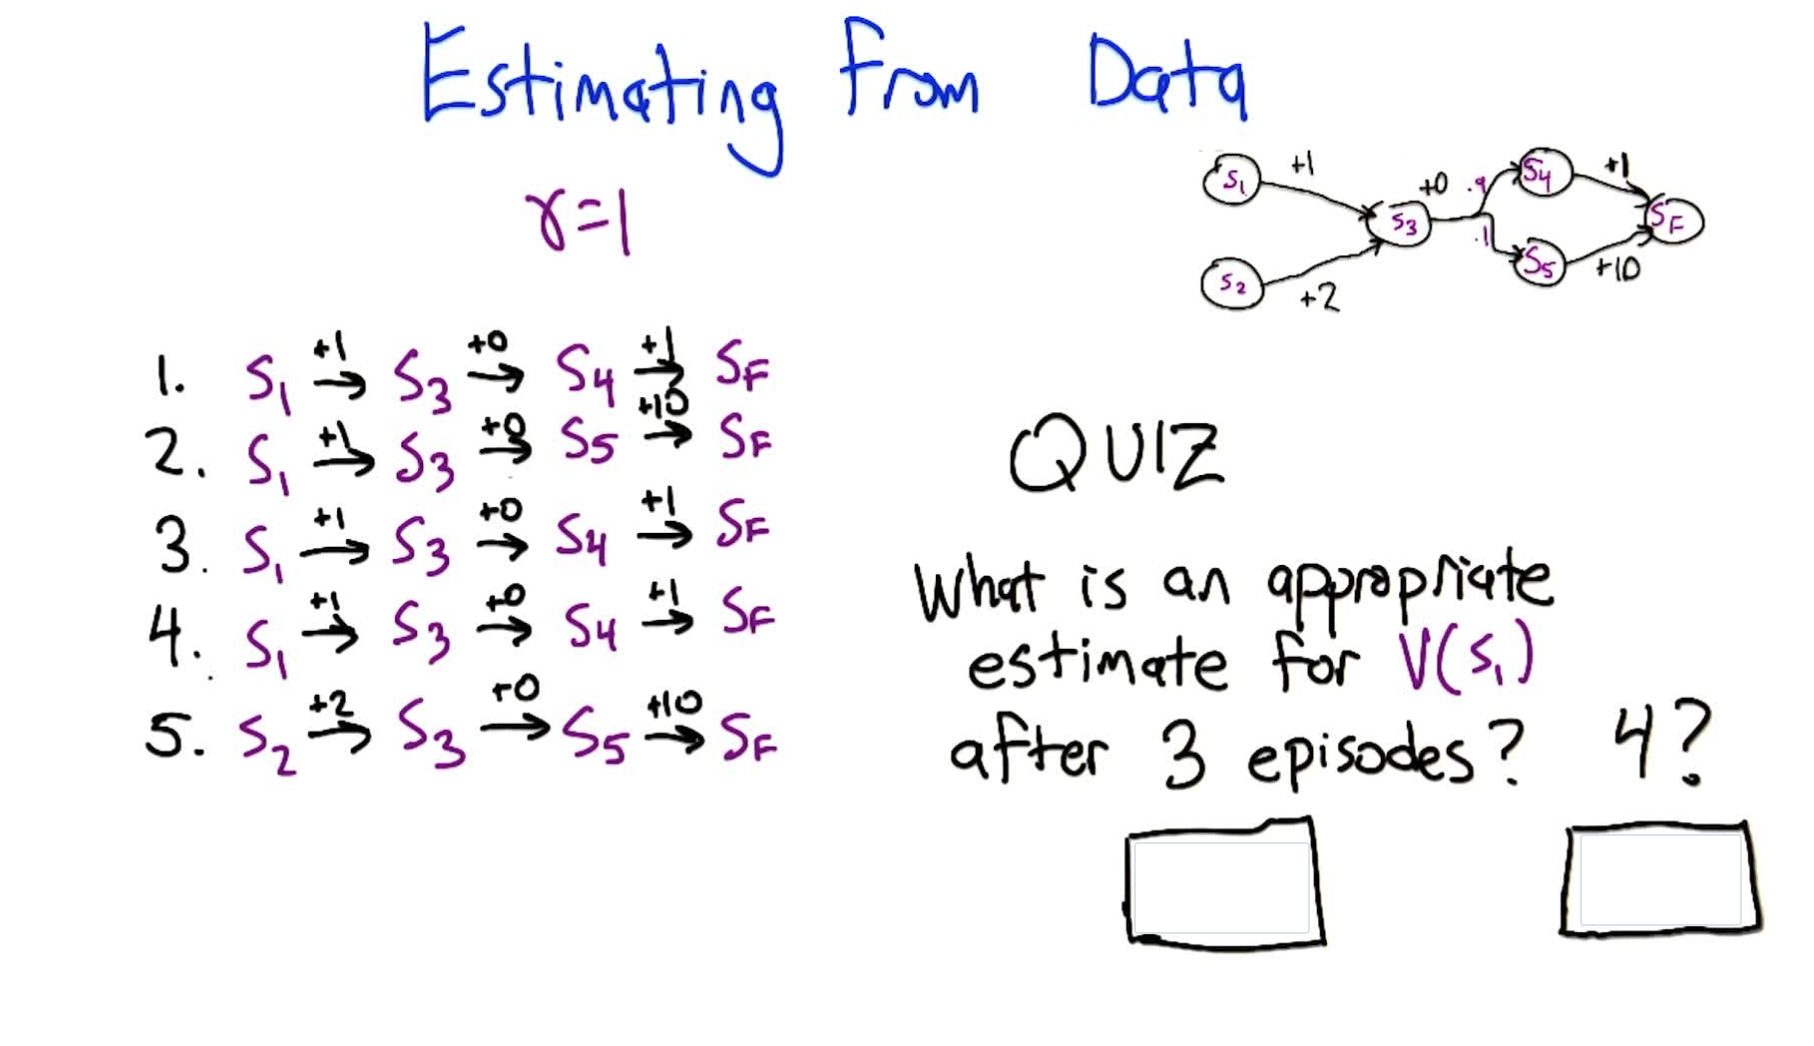 Estimating From Data
γ=1
S1 +1 S3 +0 .9 S4 +1 SF
S2 +2 .1 S5 +10
1. S1 +1→ S3 +0→ S4 +1→ SF
2. S1 +1→ S3 +0→ S5 +10→ SF
3. S1 +1→ S3 +0→ S4 +1→ SF
4. S1 +1→ S3 +0→ S4 +1→ SF
5. S2 +2→ S3 +0→ S5 +10→ SF
QUIZ
What is an appropriate
estimate for V(S1)
after 3 episodes? 4?